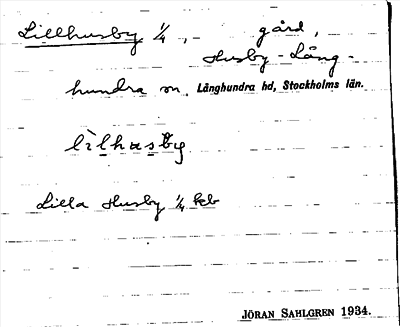 Lillhusby ¼, - gård,
Husby - Lång-
hundra sn, Långhundra hd, Stockholms län.
lìlhusby
Lilla Husby ¼ kcb
JÖRAN SAHLGREN 1934.